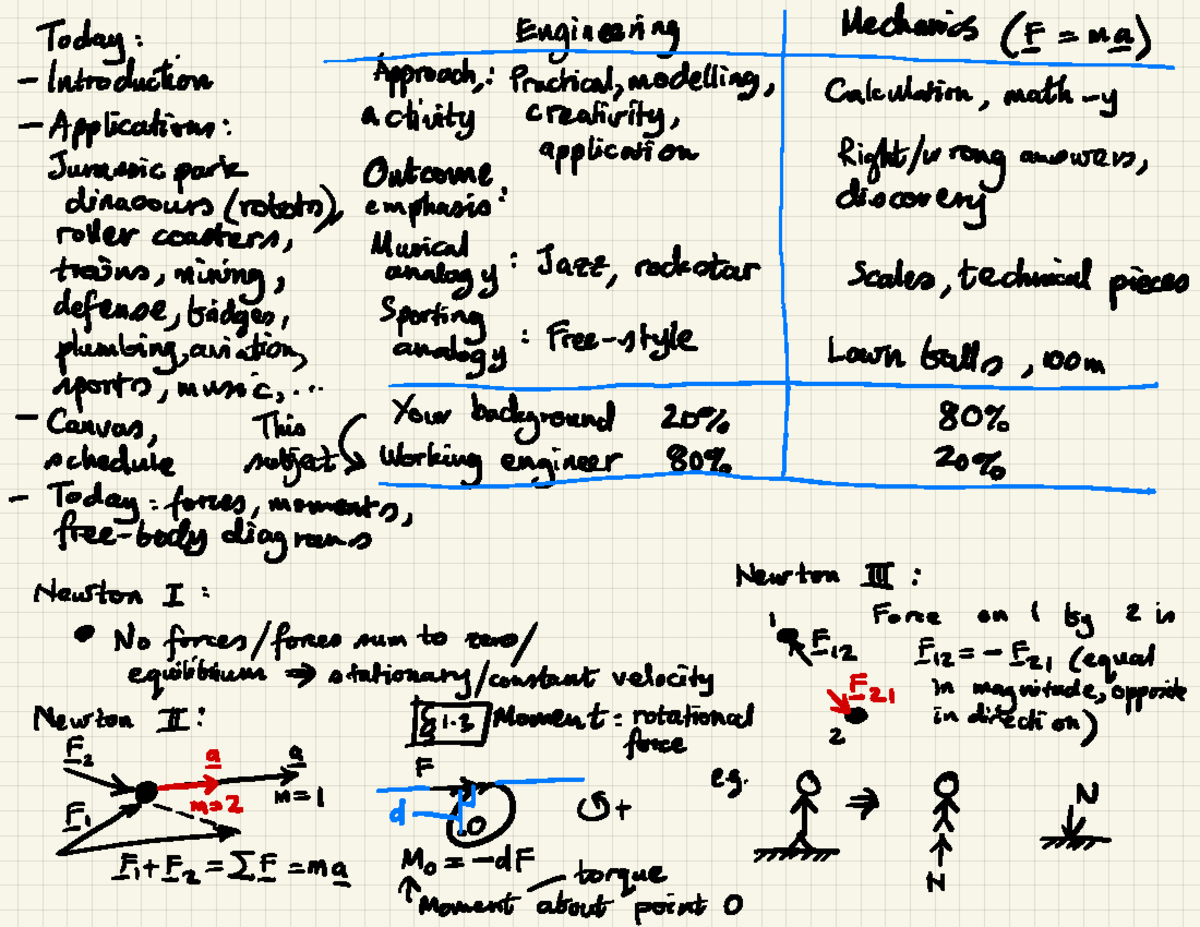 Today:
- Introduction
- Applications:
Jurassic park
dinasours (robots),
roller coasters,
trains, mining,
defense, bridges,
plumbing, aviation,
sports, music, ...
- Canvas,
schedule
- Today: forces, moments,
free-body diagrams
Engineering
Mechanics (F = ma)
Approach, : Practical, modelling,
activity creativity,
application
Calculation, math-y
Outcome
emphasis:
Right/wrong answers,
discovery
Musical
analogy : Jazz, rockstar
Scales, technical pieces
Sporting
analogy : Free-style
Lawn balls, 100m
This
subject
Your background 20% 80%
Working engineer 80% 20%
Newton I:
• No forces/forces sum to zero/
equilibrium ⇒ stationary/constant velocity
Newton II:
F₂
a
a
m=2
m=1
F₁
F₁+F₂ = ΣF = ma
§1.3 Moment: rotational
force
F
d
O
↺+
M₀ = -dF
torque
↑Moment about point O
Newton III:
Force on 1 by 2 is
1
F₁₂
F₂₁
2
F₁₂ = - F₂₁ (equal
in magnitude, opposite
in direction)
e.g.
⇒
N
N